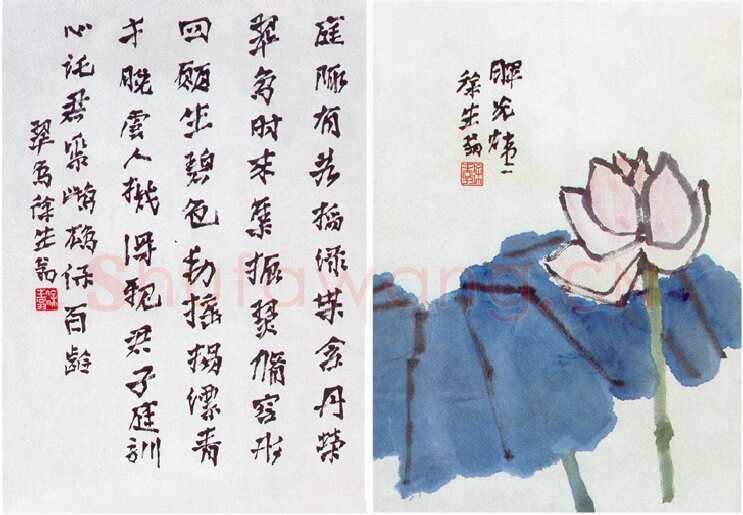 庭陬有若榴綠葉含丹榮
翠鳥時來集振翼脩容形
回顧生碧色動搖揚縹青
才脫虞人機得親君子庭訓
心託君素雌雄保百齡
翠鳥徐生翁
暉光煒
徐生翁
Shufawang.cn